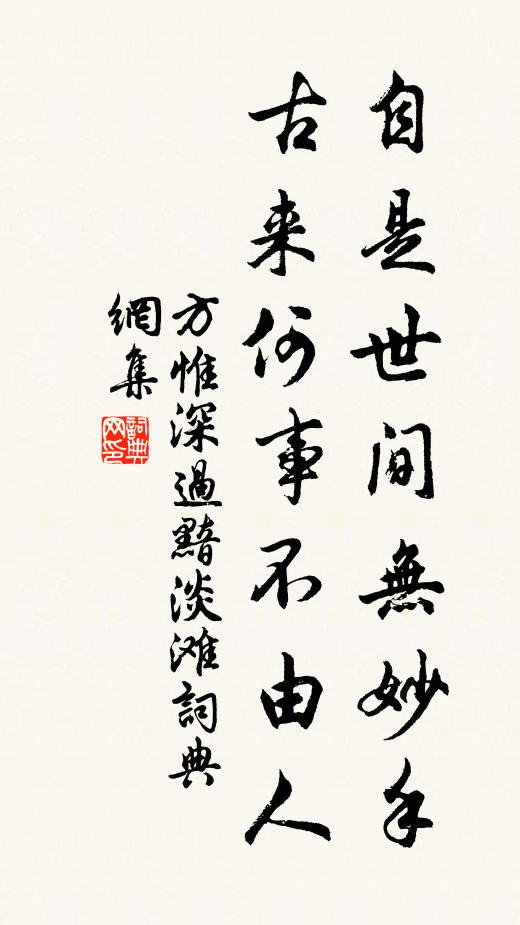 自是世間無妙手
古来何事不由人
方惟深過黯淡滩詞典
網集
詞典
网印